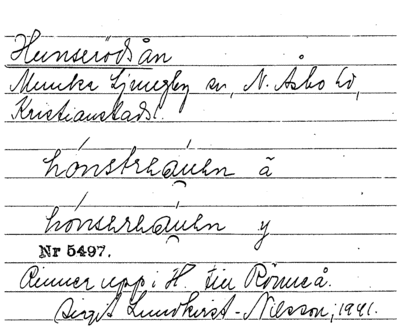 Hunserödsån
Munka Ljungby sn, N. Åsbo hd,
Kristianstads l.
hónstreáuen ä
hónsereáuen y
Nr 5497.
Rinner upp i H. till Rönneå.
Birgit Lundkvist-Nilsson, 1941.